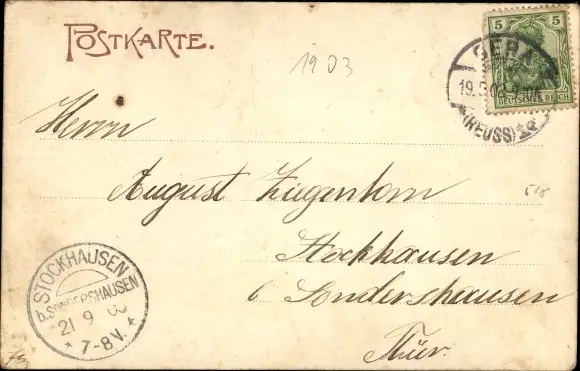 POSTKARTE.
1903
5 5
DEUTSCHES REICH
GERA
19.9.03
(REUSS)
Herrn
August Ziegenhorn
Stockhausen
b. Sondershausen
Thür.
STOCKHAUSEN
b. SONDERSHAUSEN
21 9 03
* 7-8 V. *